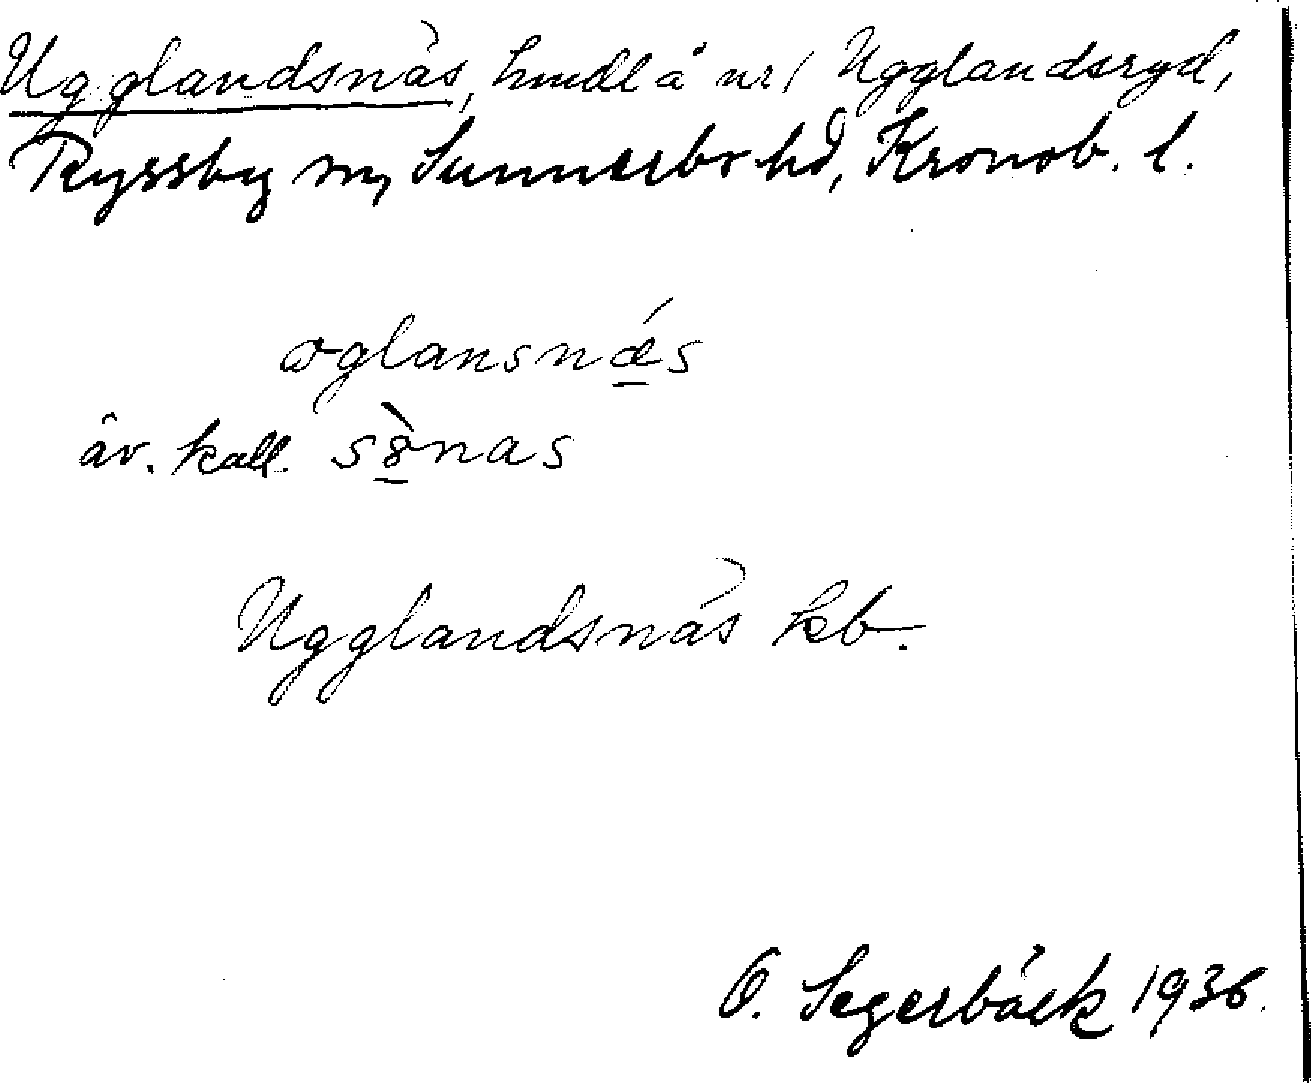 Ugglandsnäs, hmdl å nr 1 Ugglandsryd,
Ryssby sn, Sunnerbo hd, Kronob. l.
oglansnǽs
äv. kall. sònas
Ugglandsnäs kb.
O. Segerbäck 1936.